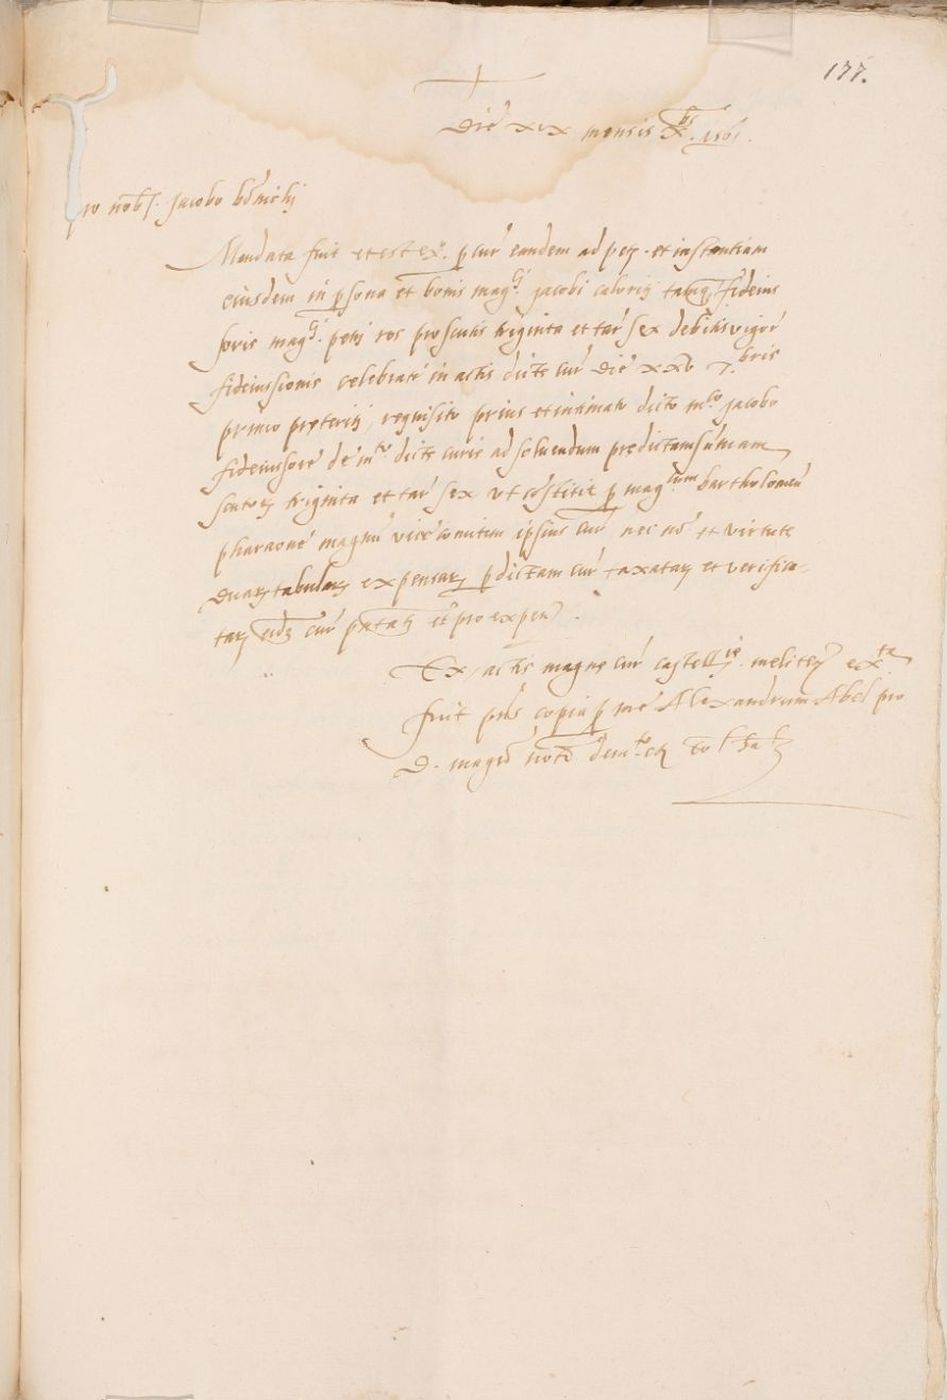 177.
Die xix mensis Xbris 1561.
pro nob. Jacobo
Mandata fuit et est ex. p cur eandem ad petz. et instantiam
eiusdem in psona et bonis magci Jacobi calorij tamq fideius
soris magci. petri ros pro scutis triginta et tar sex debitis vigore
fideiussionis celebrate in actis dicte cur die xxv 7.bris
primo preteriti, requisito prius et intimato dicto mco Jacobo
fideiussore de mto dicte curie ad soluendum predictam sumam
scutorz triginta et tar sex ut costitit p magcum bartholomeu
pharaone magnu vice comitem ipsius cur nec no et virtute
duarz tabularz expensarz p dictam cur taxatarz et verifica-
tarz eidz cur et pro expen.
Ex actis magne cur castellie meliten exta
fuit pns copia p me Alexandrum Abel pro
D. magro noto